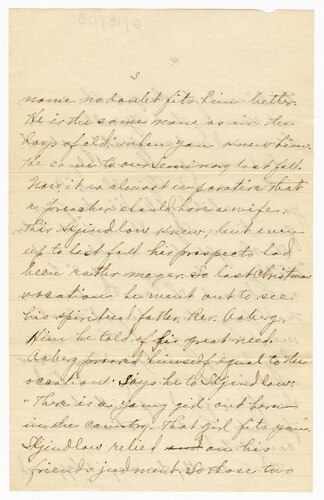 3
name no doubt fits him better.
He is the same man as in the
"days of old," when you knew him.
He came to our Seminary last fall.
Now it is almost imperative that
a preacher should have a wife.
This Hjindlow knew, but even
up to last fall his prospects had
been rather meager. So last Christmas
vacation he went out to see
his spiritual father, Rev. Aaberg.
Him he told of his great need.
Aaberg proved himself equal to the
occation. Says he to Hjindlow:
"There is a young girl out here
in the country. That girl fits you."
Hjindlow relied on his
friends judgment. So those two